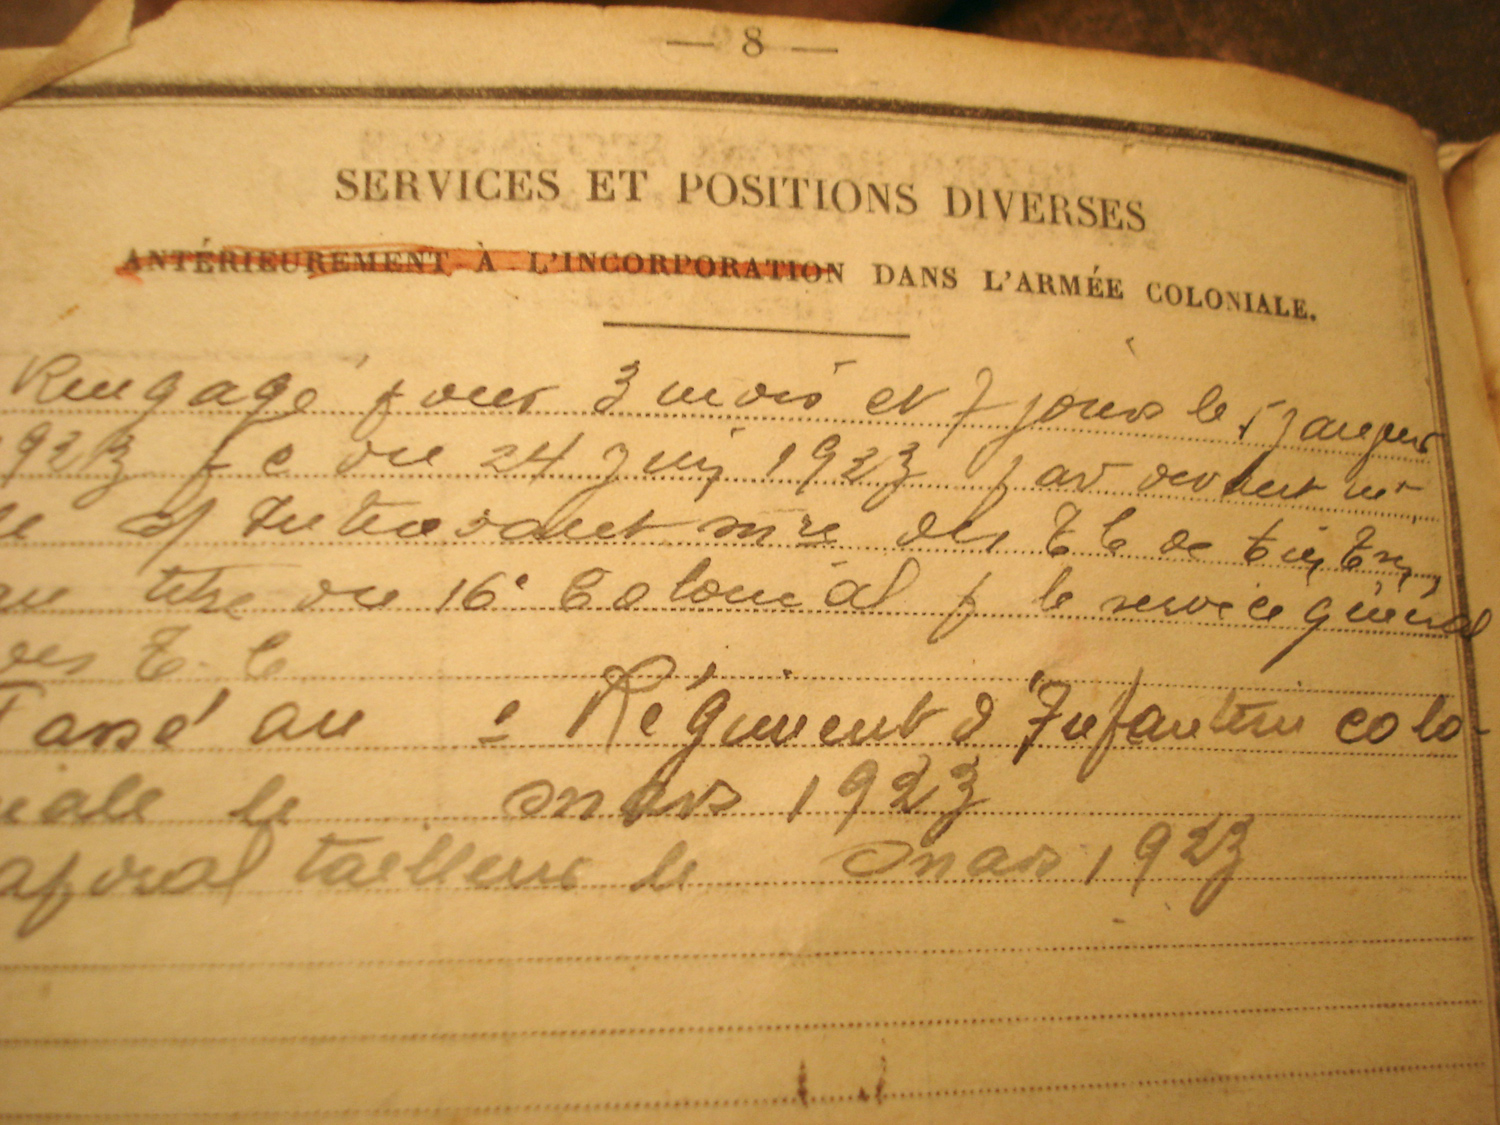 — 8 —
SERVICES ET POSITIONS DIVERSES
ANTÉRIEUREMENT À L'INCORPORATION DANS L'ARMÉE COLONIALE.
Rengagé pour 3 mois et 7 jours le 5 janvier
1923 p c du 24 Juin 1923 par devant mr
le s/ Intendant mre des T C de Tien Tsin,
au titre du 16e Colonial p le service général
des T. C
Passé au e Régiment d'Infanterie colo-
niale le mars 1923
caporal tailleur le mars 1923